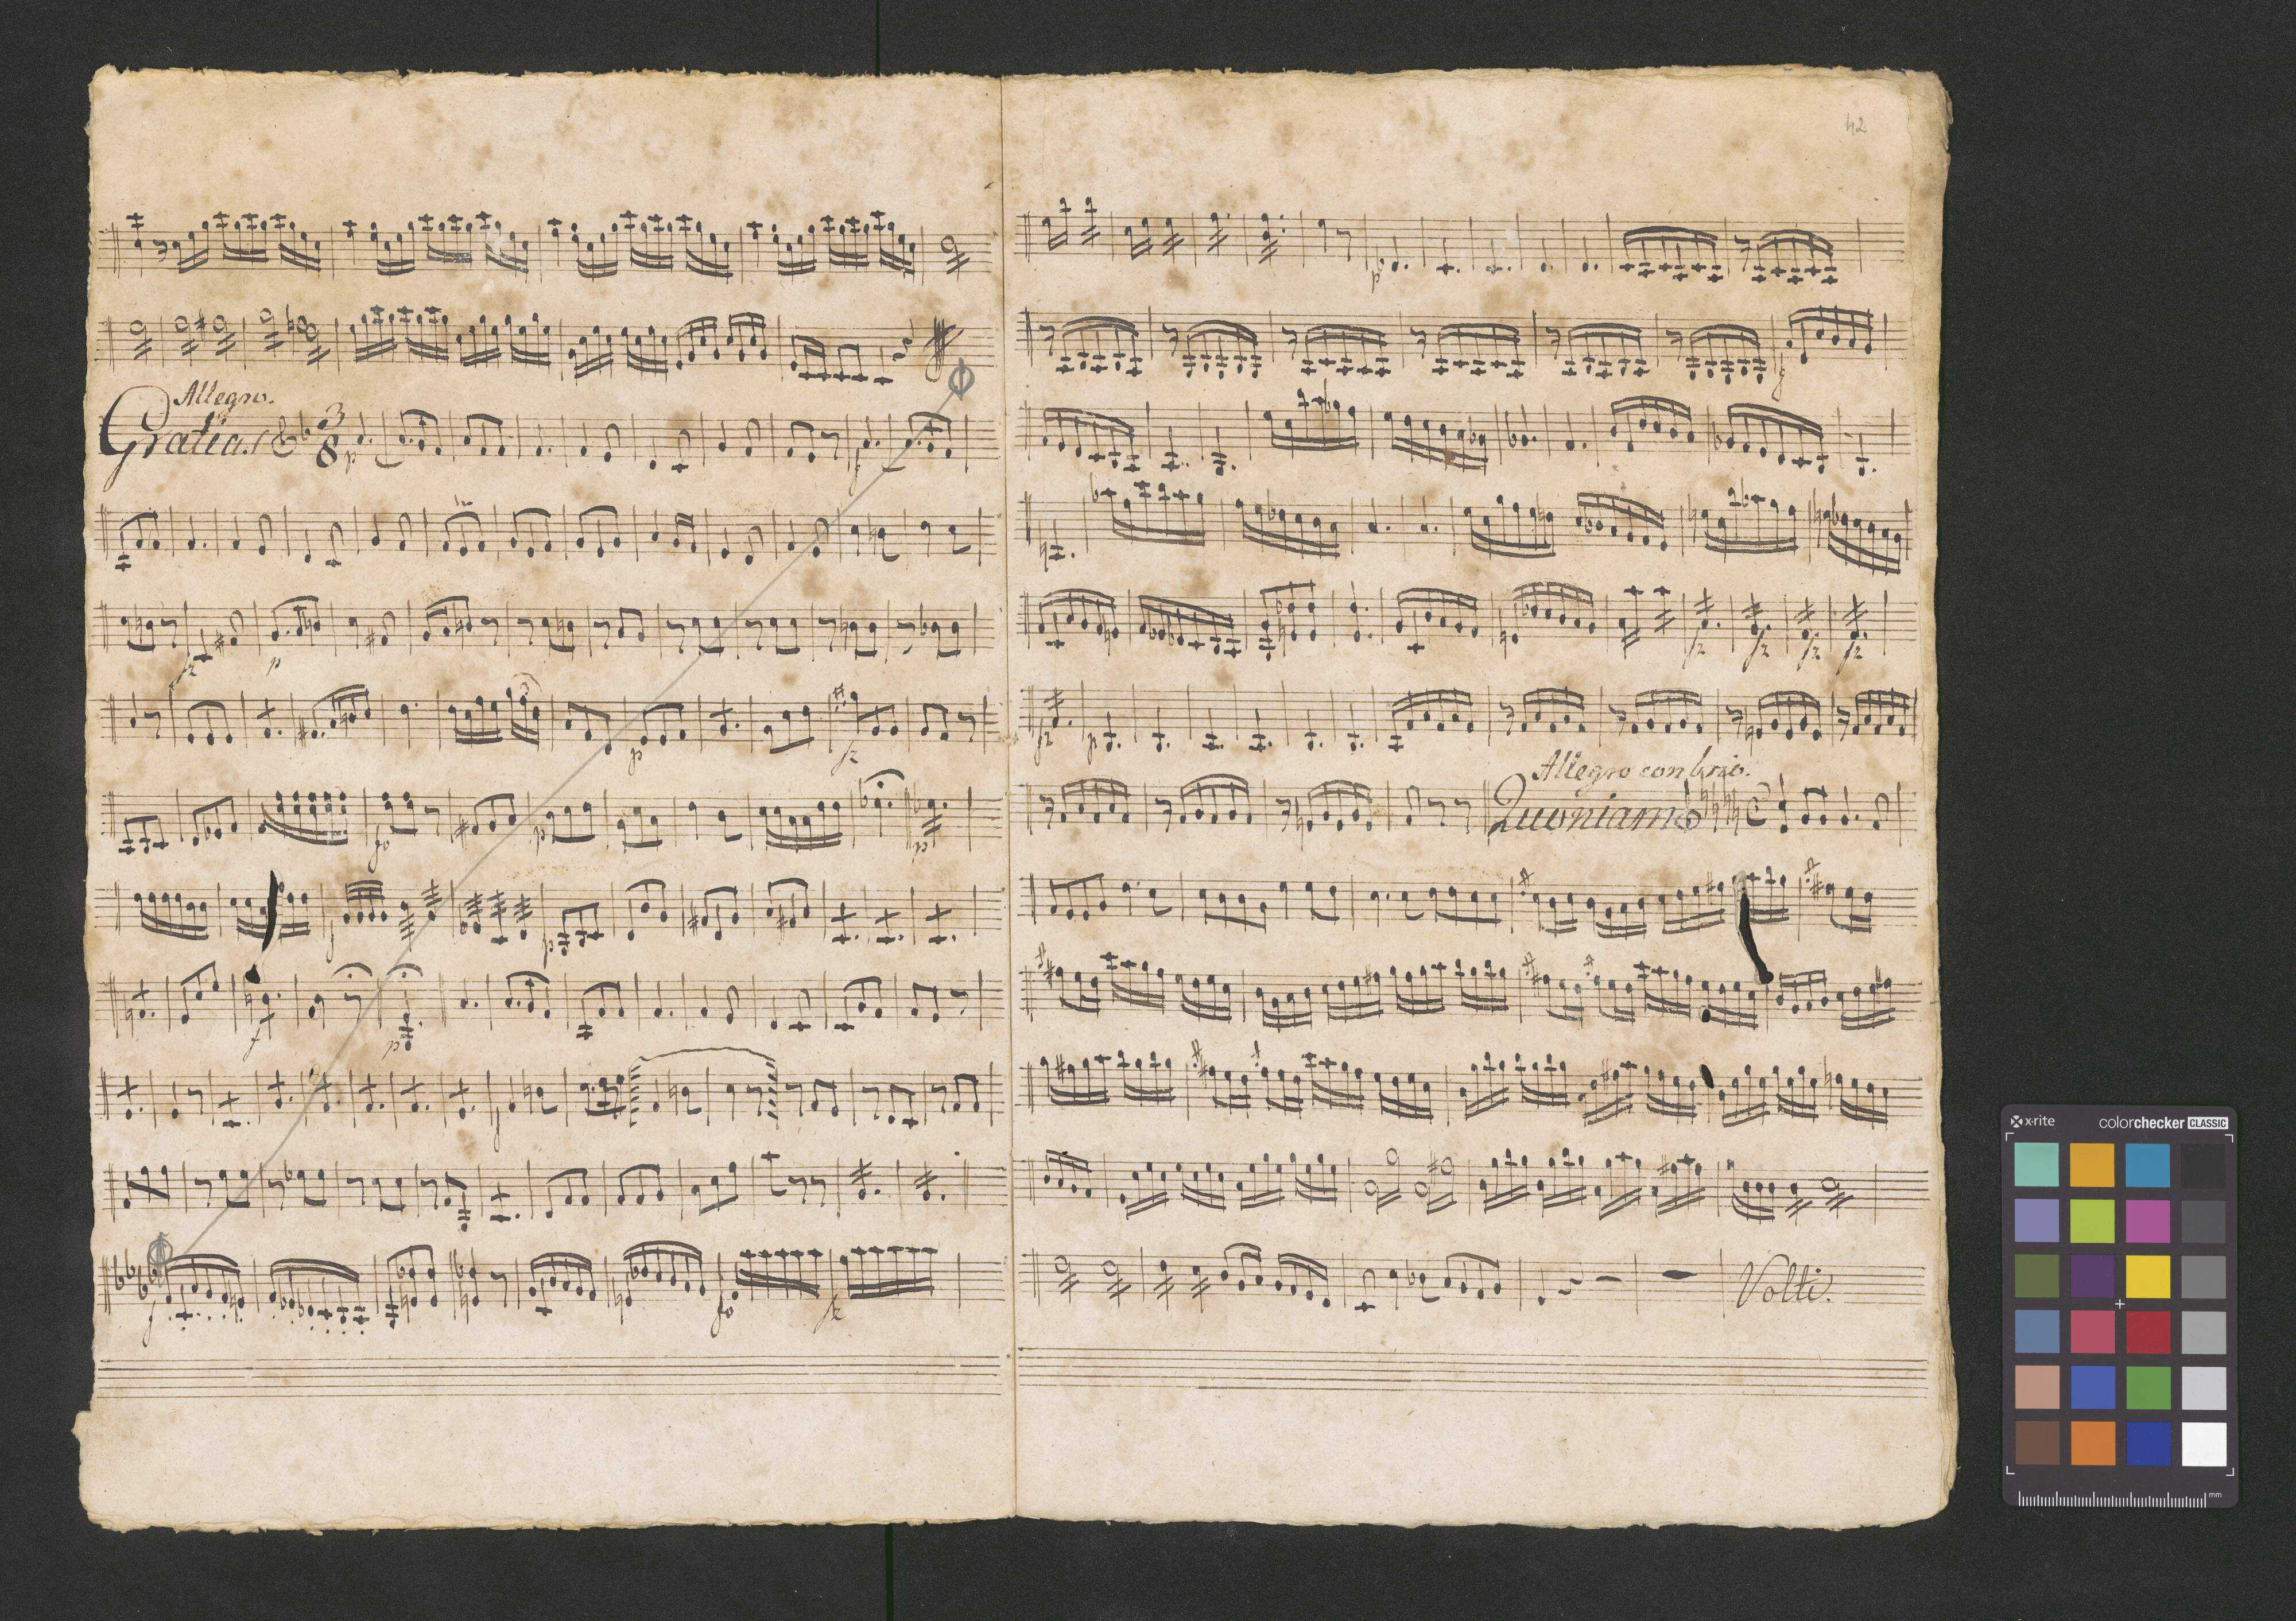 Allegro.
Gratias 3 8 p f
fz p
p fz
p fo p p
f p
f p
f
f fo fz
42
p
f
fz fz fz fz
fz p
Allegro con brio.
Quoniam
Volti.
x-rite colorchecker CLASSIC
mm